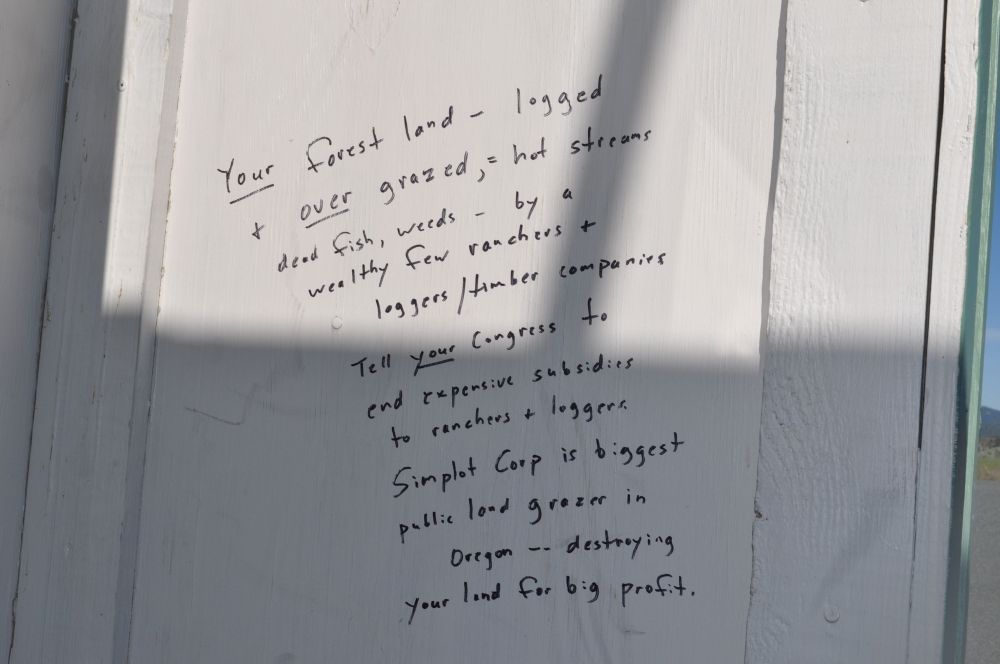 Your forest land - logged
+ over grazed, = hot streams
dead fish, weeds - by a
wealthy few ranchers +
loggers/timber companies
Tell your Congress to
end expensive subsidies
to ranchers + loggers.
Simplot Corp is biggest
public land grazer in
Oregon -- destroying
your land for big profit.